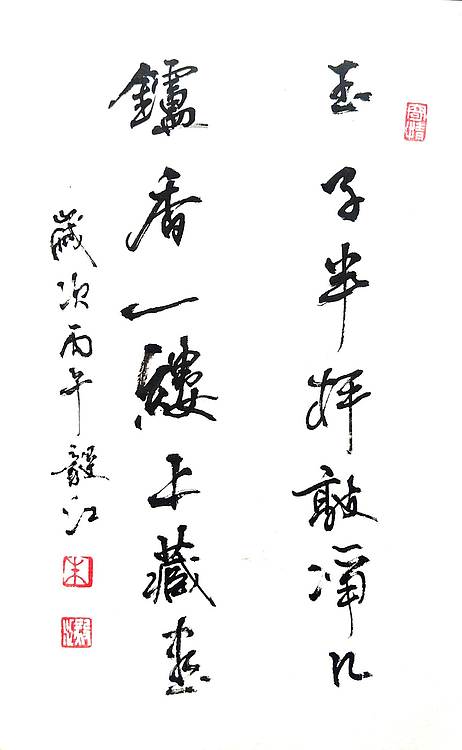 玉子半枰敲淨几
鑪香一縷上藏書
歲次丙午毅江
朱